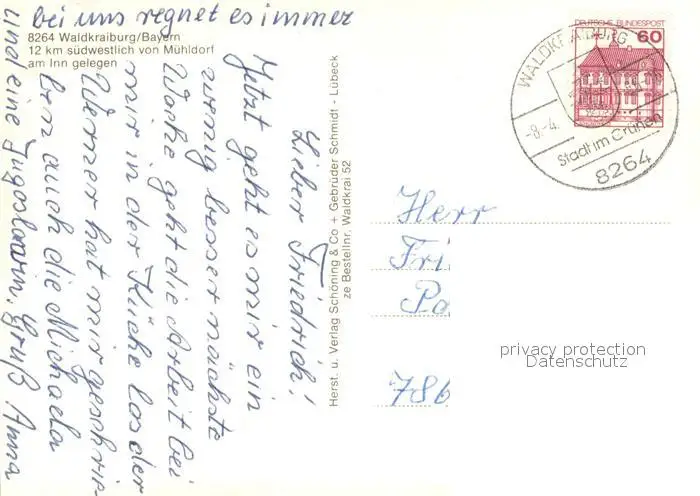 bei uns regnet es immer
8264 Waldkraiburg/Bayern
12 km südwestlich von Mühldorf
am Inn gelegen
Lieber Friedrich!
Jetzt geht es mir ein
wenig besser nächste
Woche geht die Arbeit bei
mir in der Küche los der
Werner hat mir geschrie-
ben auch die Michaela
und eine Jugoslavin. Gruß Anna
Herst. u. Verlag Schöning & Co + Gebrüder Schmidt - Lübeck
ze Bestellnr. Waldkrai 52
DEUTSCHE BUNDESPOST
60
WALDKRAIBURG
-8.-4.
Stadt im Grünen
8264
Herr
Fri
Po
786
privacy protection
Datenschutz